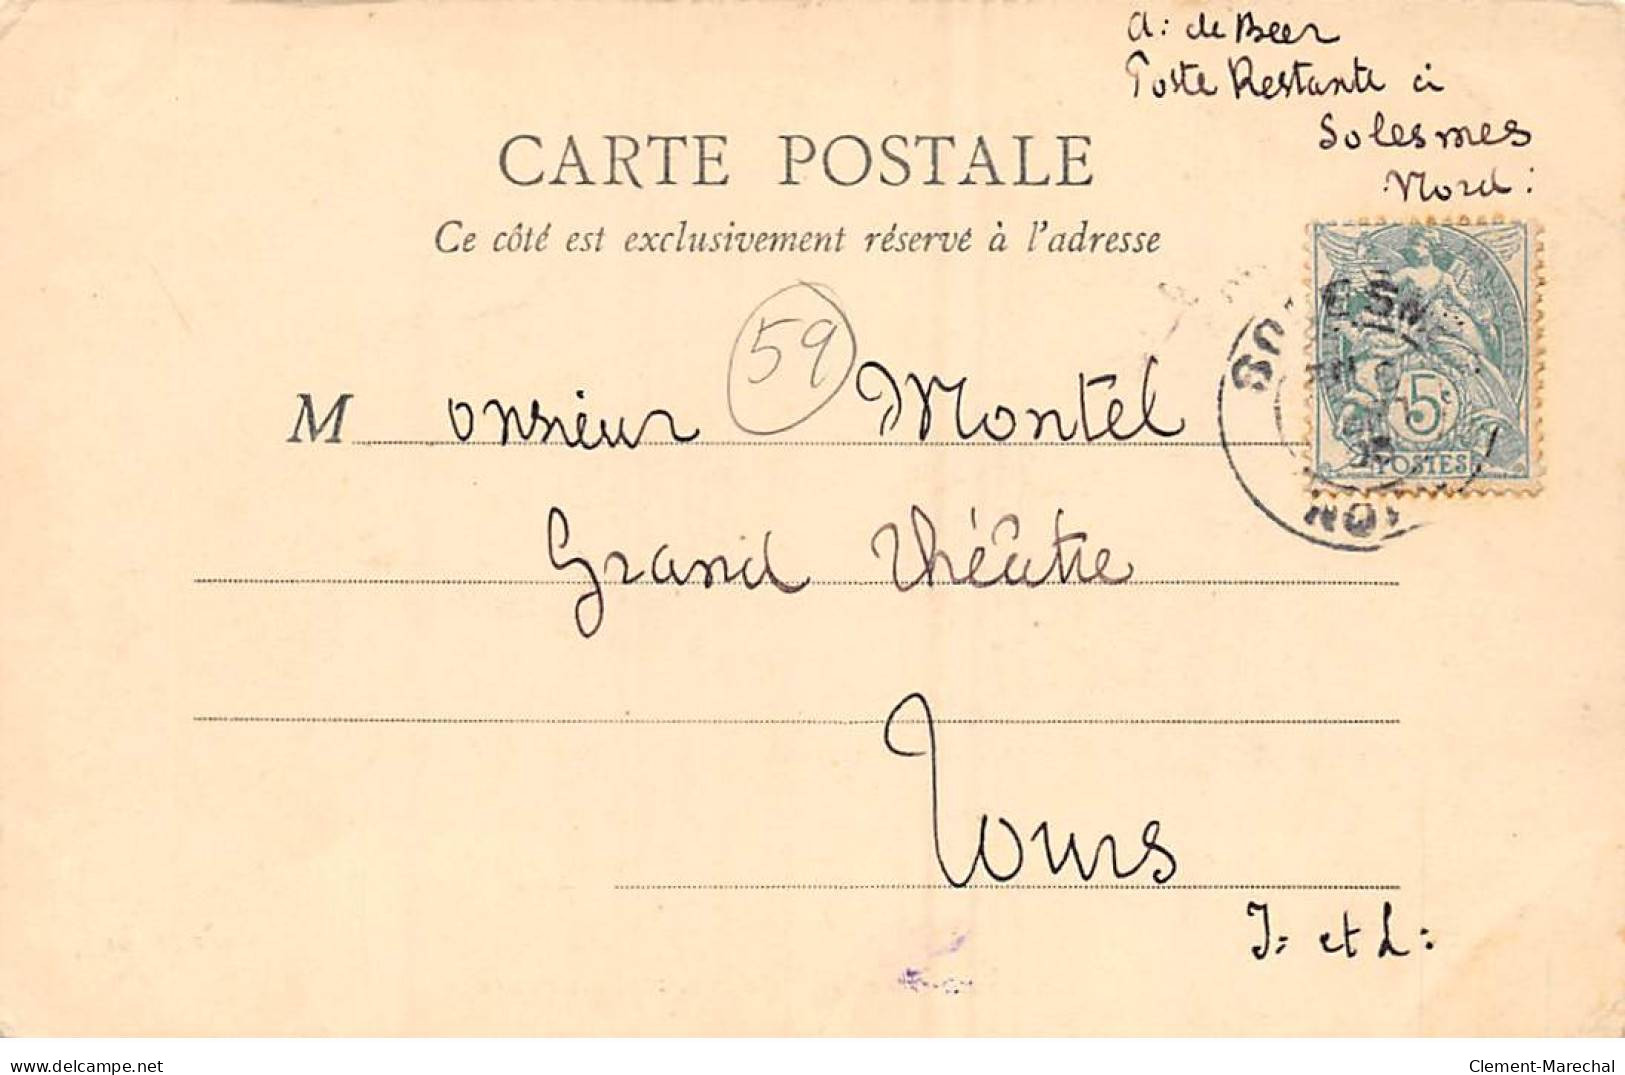 A: de Beer
Poste Restante à
Solesmes
Nord:
CARTE POSTALE
Ce côté est exclusivement réservé à l'adresse
59
Monsieur Montel
SOLESM
NO
5c
POSTES
Grand Théâtre
Tours
I: et L:
www.delcampe.net
Clement-Marechal